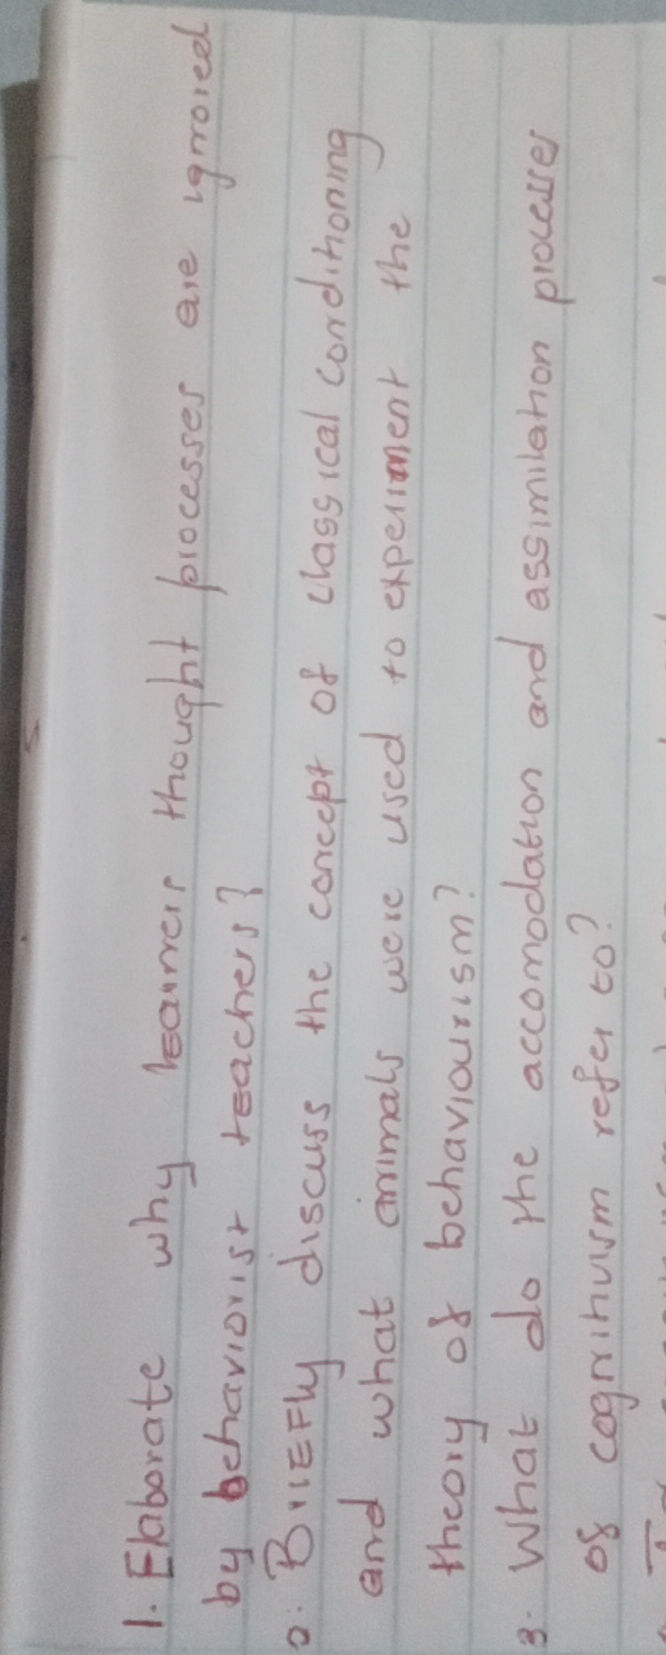 1. Elaborate why learners thought processes are ignored
by behaviorist teachers?
2. BriEFly discuss the concept of classical conditioning
and what animals were used to experiment the
theory of behaviourism?
3. What do the accomodation and assimilation processes
of cognitivism refer to?